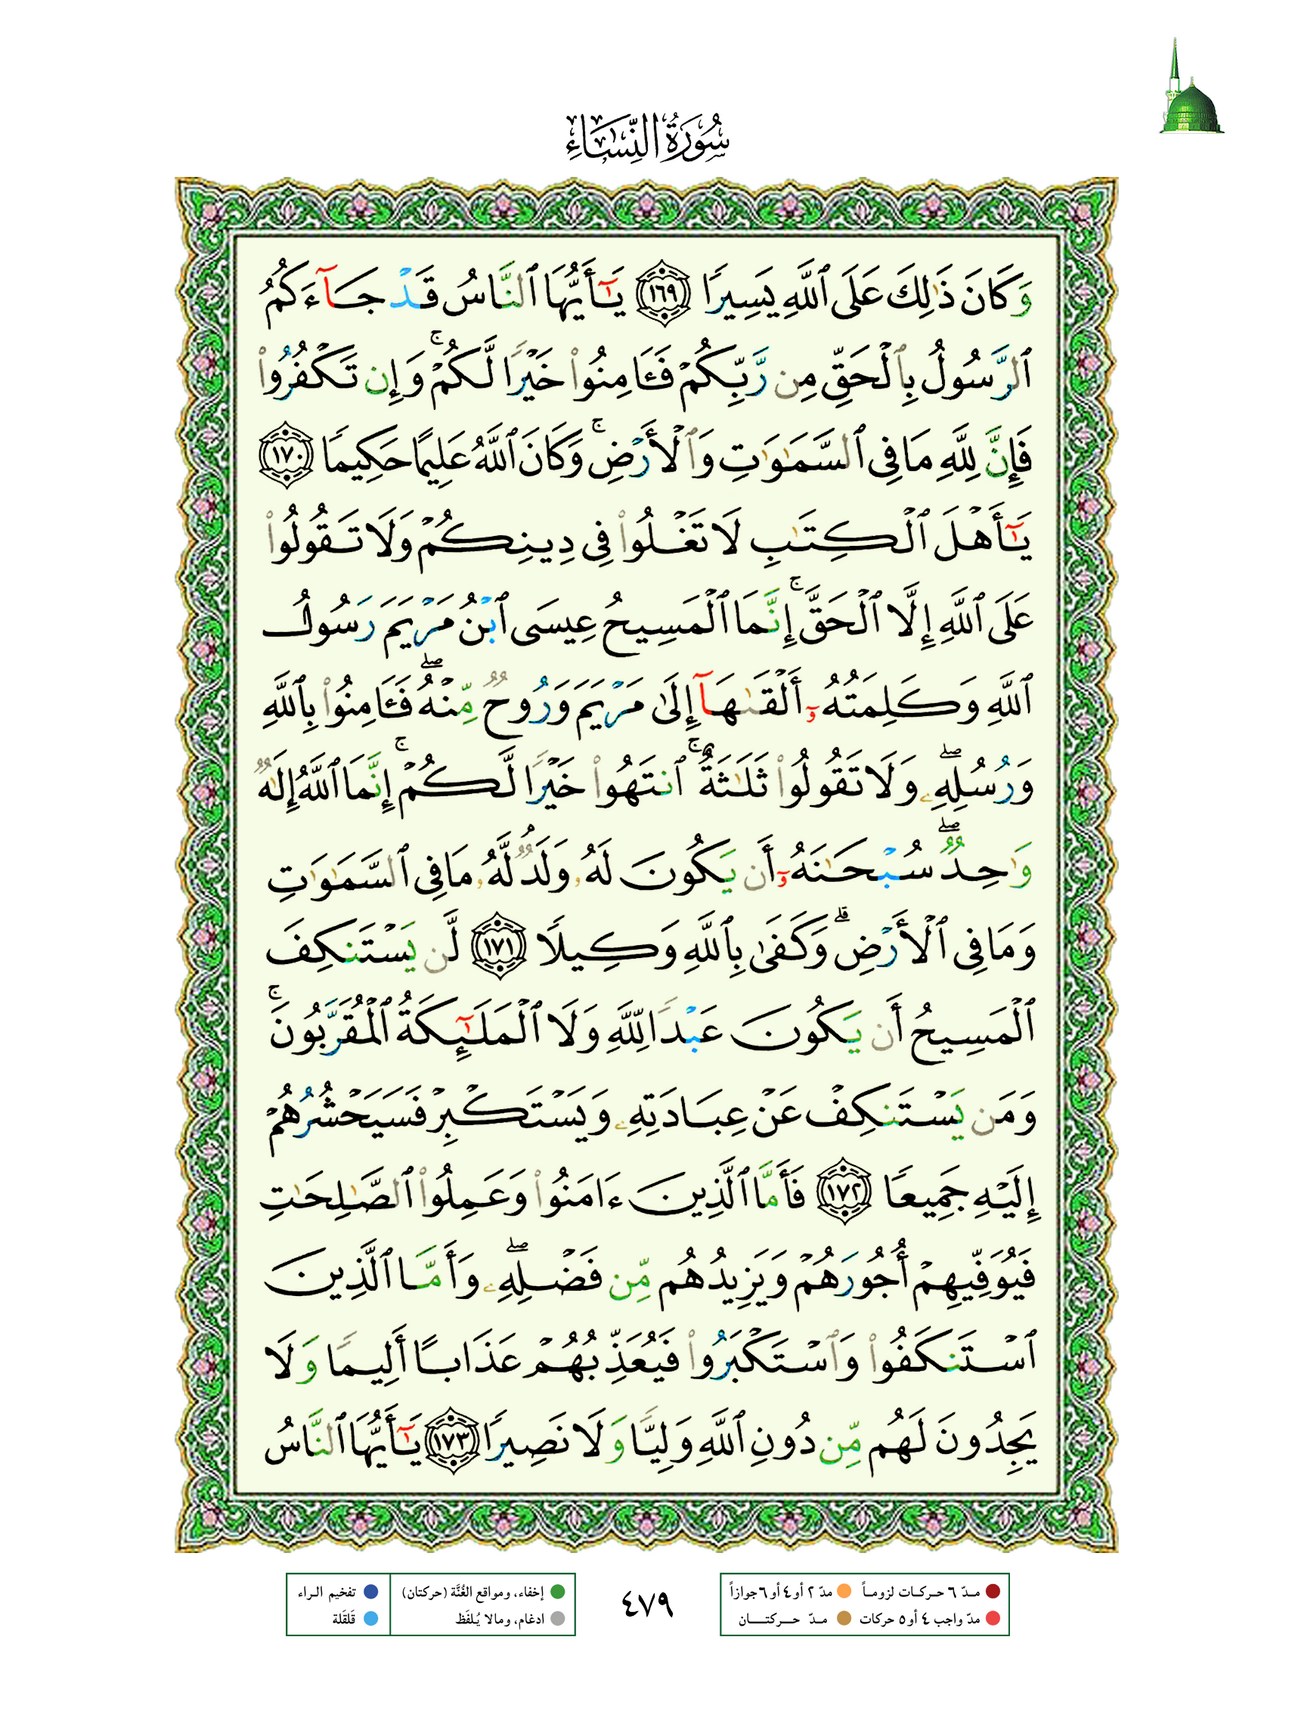 سُورَةُ النِّسَاءِ
وَكَانَ ذَٰلِكَ عَلَى ٱللَّهِ يَسِيرًا ١٦٩ يَـٰٓأَيُّهَا ٱلنَّاسُ قَدْ جَآءَكُمُ
ٱلرَّسُولُ بِٱلْحَقِّ مِن رَّبِّكُمْ فَـَٔامِنُوا۟ خَيْرًا لَّكُمْ ۚ وَإِن تَكْفُرُوا۟
فَإِنَّ لِلَّهِ مَا فِى ٱلسَّمَـٰوَٰتِ وَٱلْأَرْضِ ۚ وَكَانَ ٱللَّهُ عَلِيمًا حَكِيمًا ١٧٠
يَـٰٓأَهْلَ ٱلْكِتَـٰبِ لَا تَغْلُوا۟ فِى دِينِكُمْ وَلَا تَقُولُوا۟
عَلَى ٱللَّهِ إِلَّا ٱلْحَقَّ ۚ إِنَّمَا ٱلْمَسِيحُ عِيسَى ٱبْنُ مَرْيَمَ رَسُولُ
ٱللَّهِ وَكَلِمَتُهُۥٓ أَلْقَىٰهَآ إِلَىٰ مَرْيَمَ وَرُوحٌ مِّنْهُ ۖ فَـَٔامِنُوا۟ بِٱللَّهِ
وَرُسُلِهِۦ ۖ وَلَا تَقُولُوا۟ ثَلَـٰثَةٌ ۚ ٱنتَهُوا۟ خَيْرًا لَّكُمْ ۚ إِنَّمَا ٱللَّهُ إِلَـٰهٌ
وَٰحِدٌ ۖ سُبْحَـٰنَهُۥٓ أَن يَكُونَ لَهُۥ وَلَدٌ ۘ لَّهُۥ مَا فِى ٱلسَّمَـٰوَٰتِ
وَمَا فِى ٱلْأَرْضِ ۗ وَكَفَىٰ بِٱللَّهِ وَكِيلًا ١٧١ لَّن يَسْتَنكِفَ
ٱلْمَسِيحُ أَن يَكُونَ عَبْدًا لِّلَّهِ وَلَا ٱلْمَلَـٰٓئِكَةُ ٱلْمُقَرَّبُونَ ۚ
وَمَن يَسْتَنكِفْ عَنْ عِبَادَتِهِۦ وَيَسْتَكْبِرْ فَسَيَحْشُرُهُمْ
إِلَيْهِ جَمِيعًا ١٧٢ فَأَمَّا ٱلَّذِينَ ءَامَنُوا۟ وَعَمِلُوا۟ ٱلصَّـٰلِحَـٰتِ
فَيُوَفِّيهِمْ أُجُورَهُمْ وَيَزِيدُهُم مِّن فَضْلِهِۦ ۖ وَأَمَّا ٱلَّذِينَ
ٱسْتَنكَفُوا۟ وَٱسْتَكْبَرُوا۟ فَيُعَذِّبُهُمْ عَذَابًا أَلِيمًا وَلَا
يَجِدُونَ لَهُم مِّن دُونِ ٱللَّهِ وَلِيًّا وَلَا نَصِيرًا ١٧٣ يَـٰٓأَيُّهَا ٱلنَّاسُ
مـدّ ٦ حـركـات لزومـاً مدّ ٢ أو ٤ أو ٦ جوازاً
مدّ واجب ٤ أو ٥ حركات مـدّ حـــركتــــان
٤٧٩
إخفاء، ومواقع الغُنَّة (حركتان) تفخيم الـراء
ادغام، ومالا يُـلفَظ قلقلة